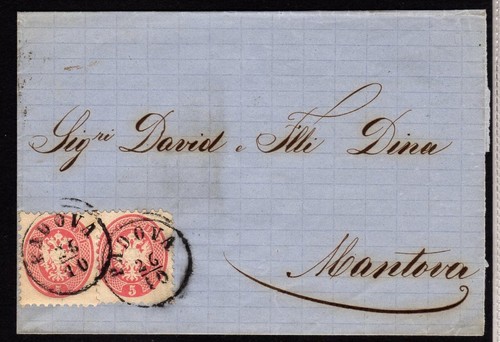 Sigri David e Flli Dina
Mantova
PADOVA
26
10
PADOVA
26
10
5
5